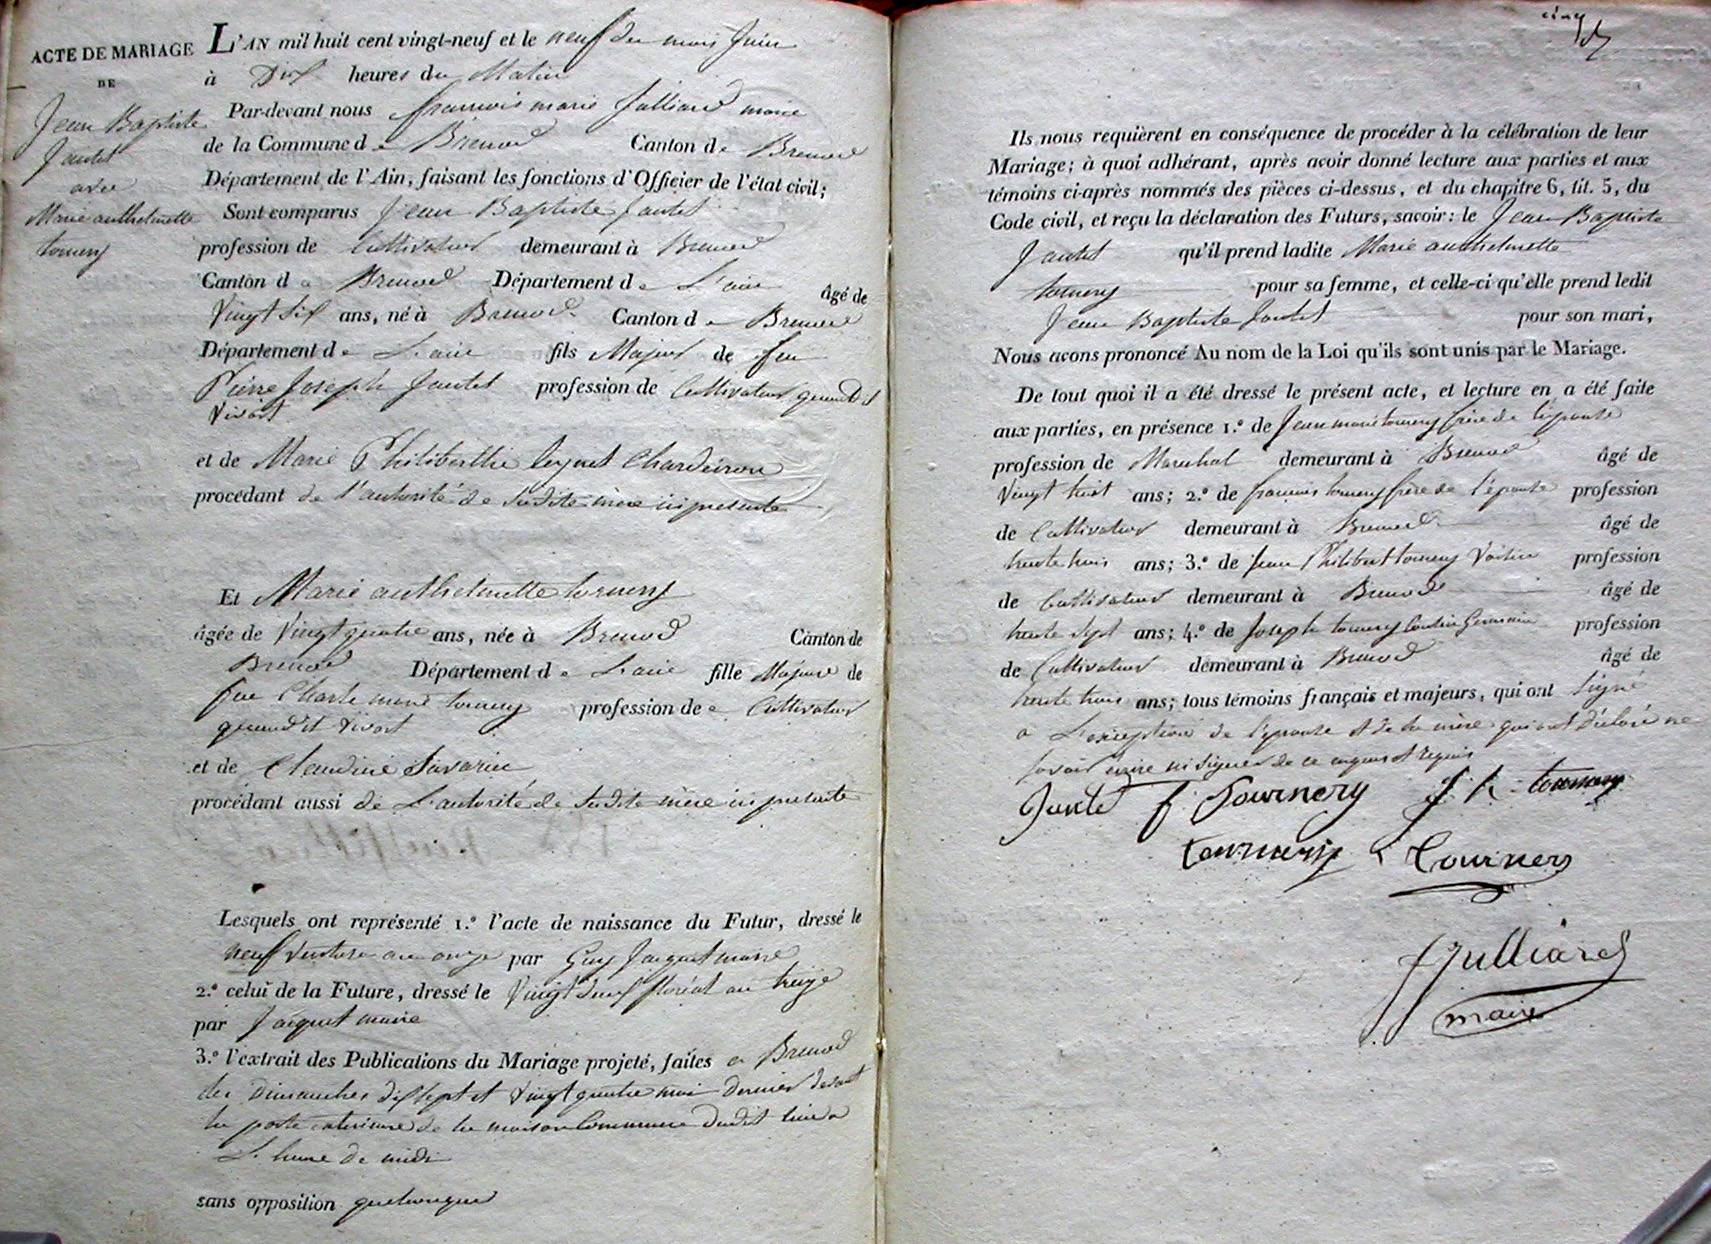 ACTE DE MARIAGE
DE
Jean Baptiste
Jantet
avec
Marie anthelmette
tournery
L'AN mil huit cent vingt-neuf et le neuf du mois Juin
à Dix heures du Matin
Par-devant nous françois marie Julliard maire
de la Commune de Brenod Canton de Brenod
Département de l'Ain, faisant les fonctions d'Officier de l'état civil;
Sont comparus Jean Baptiste Jantet
profession de Cultivateur demeurant à Brenod
Canton de Brenod Département de L'ain âgé de
Vingt six ans, né à Brenod Canton de Brenod
Département de L'ain fils Majeur de feu
Pierre Joseph Jantet profession de Cultivateur quand il
Vivoit
et de Marie Philiberthe Chardeiron
procédant de l'autorité de Sadite mère ici présente
Et Marie anthelmette tournery
âgée de Vingt quatre ans, née à Brenod Canton de
Brenod Département de L'ain fille Majeure de
feu Charle marie tournery profession de Cultivateur
quand il Vivoit
et de Claudine Savarin
procédant aussi de L'autorité de Sadite mère ici présente
Lesquels ont représenté 1.º l'acte de naissance du Futur, dressé le
neuf Ventose an onze par Guy Jacquet maire
2.º celui de la Future, dressé le Vingt deux floréal an treize
par Jacquet maire
3.º l'extrait des Publications du Mariage projeté, faites a Brenod
les Dimanches dix sept et Vingt quatre mai dernier devant
la porte extérieure de la maison Commune dudit lieu a
L'heure de midi
sans opposition quelconque
cinq
Ils nous requièrent en conséquence de procéder à la célébration de leur
Mariage; à quoi adhérant, après avoir donné lecture aux parties et aux
témoins ci-après nommés des pièces ci-dessus, et du chapitre 6, tit. 5, du
Code civil, et reçu la déclaration des Futurs, savoir: le Jean Baptiste
Jantet qu'il prend ladite Marie anthelmette
tournery pour sa femme, et celle-ci qu'elle prend ledit
Jean Baptiste Jantet pour son mari,
Nous avons prononcé Au nom de la Loi qu'ils sont unis par le Mariage.
De tout quoi il a été dressé le présent acte, et lecture en a été faite
aux parties, en présence 1.º de Jean marie tournery frère de l'épouse
profession de Marechal demeurant à Brenod âgé de
Vingt huit ans; 2.º de françois tournery frère de l'épouse profession
de Cultivateur demeurant à Brenod âgé de
trente trois ans; 3.º de Jean Philibert tournery Voisin profession
de Cultivateur demeurant à Brenod âgé de
trente Sept ans; 4.º de Joseph tournery Cousin Germain profession
de Cultivateur demeurant à Brenod âgé de
trente trois ans; tous témoins français et majeurs, qui ont Signé
a L'exception de l'épouse et de la mère qui ont déclaré ne
Savoir écrire ni Signer de ce enquis et requis
Jantet f Tournery J. P. tournery
tournery Tournery
f Julliard
maire